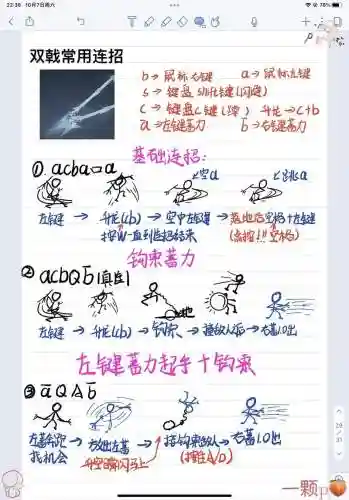 22:38 10月7日周六
78%
双戟常用连招
b → 鼠标右键 a → 鼠标左键
s → 键盘 shift键(闪避)
c → 键盘c键(蹲) 升龙 → c+b
a̅ → 左键蓄力 b̅ → 右键蓄力
基础连招:
①. acba□a
空a 跳a
左键 → 升龙(cb) → 空中左键 → 落地后空格+左键
按W一直到连招结束 (需按!!空格)
钩束蓄力
② acbQb̅
左键 → 升龙(cb) → 钩束 → 接敌人后 → 右蓄1.0出
左键蓄力起手+钩索
③ a̅QAb̅
左蓄 找机会 → 放出左蓄 → 接钩索敌人 → 右蓄1.0出
升空瞬闪马上 (按住A/D)
29
31
一颗p